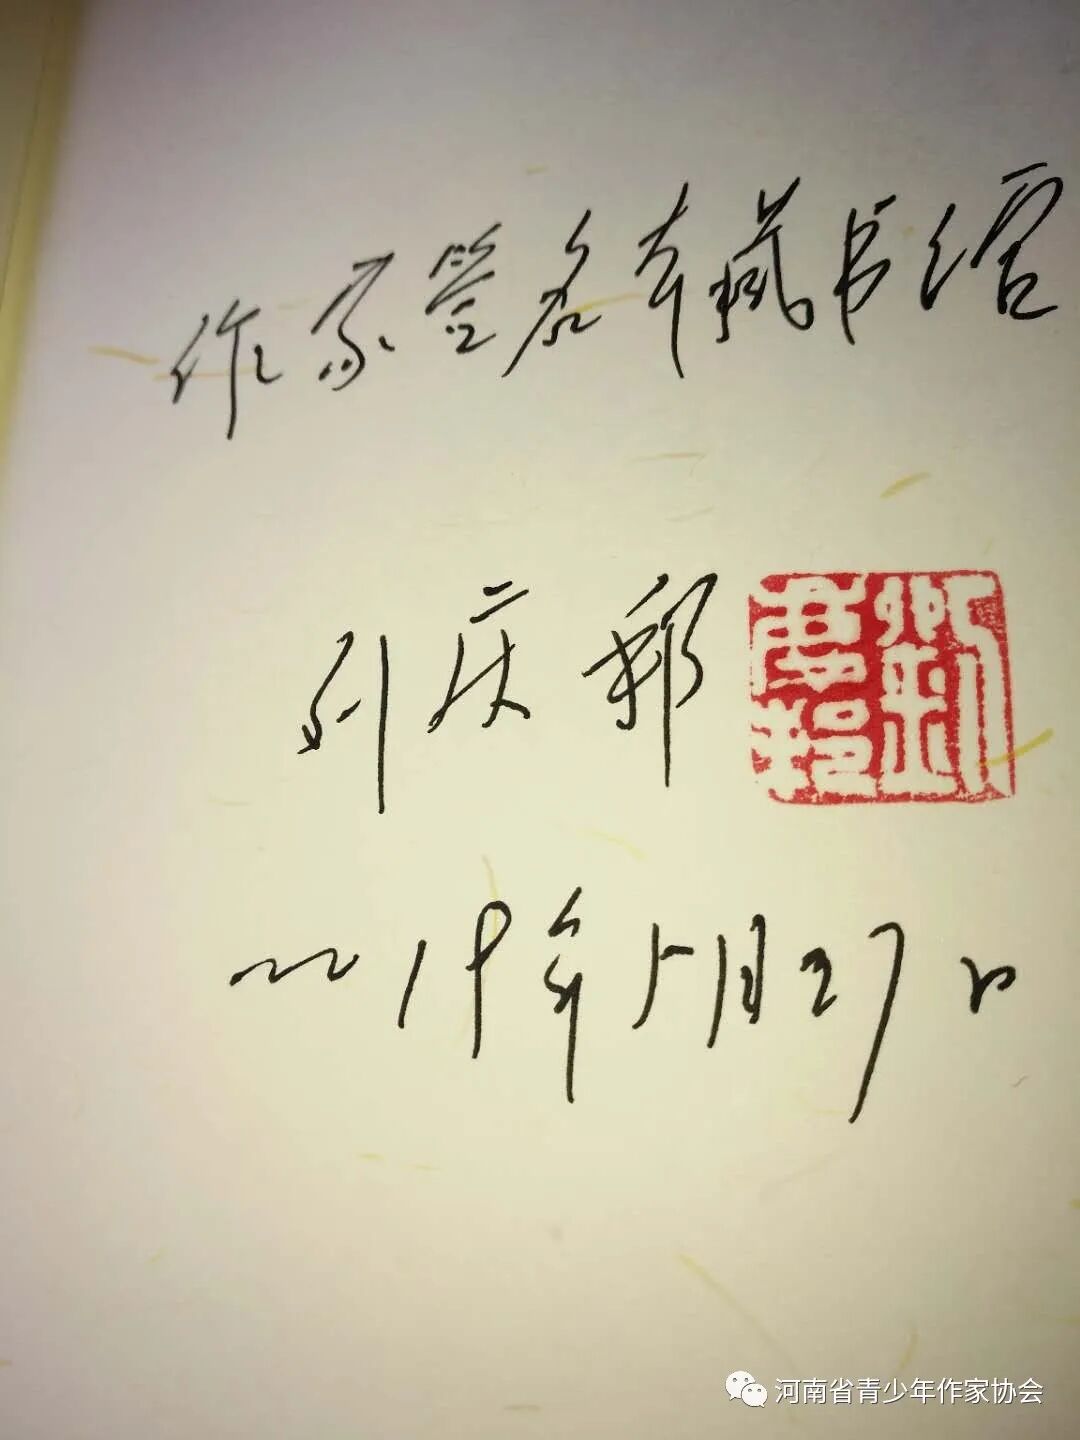 作家签名本藏书馆
刘庆邦
刘庆邦
二〇19年5月27日
河南省青少年作家协会